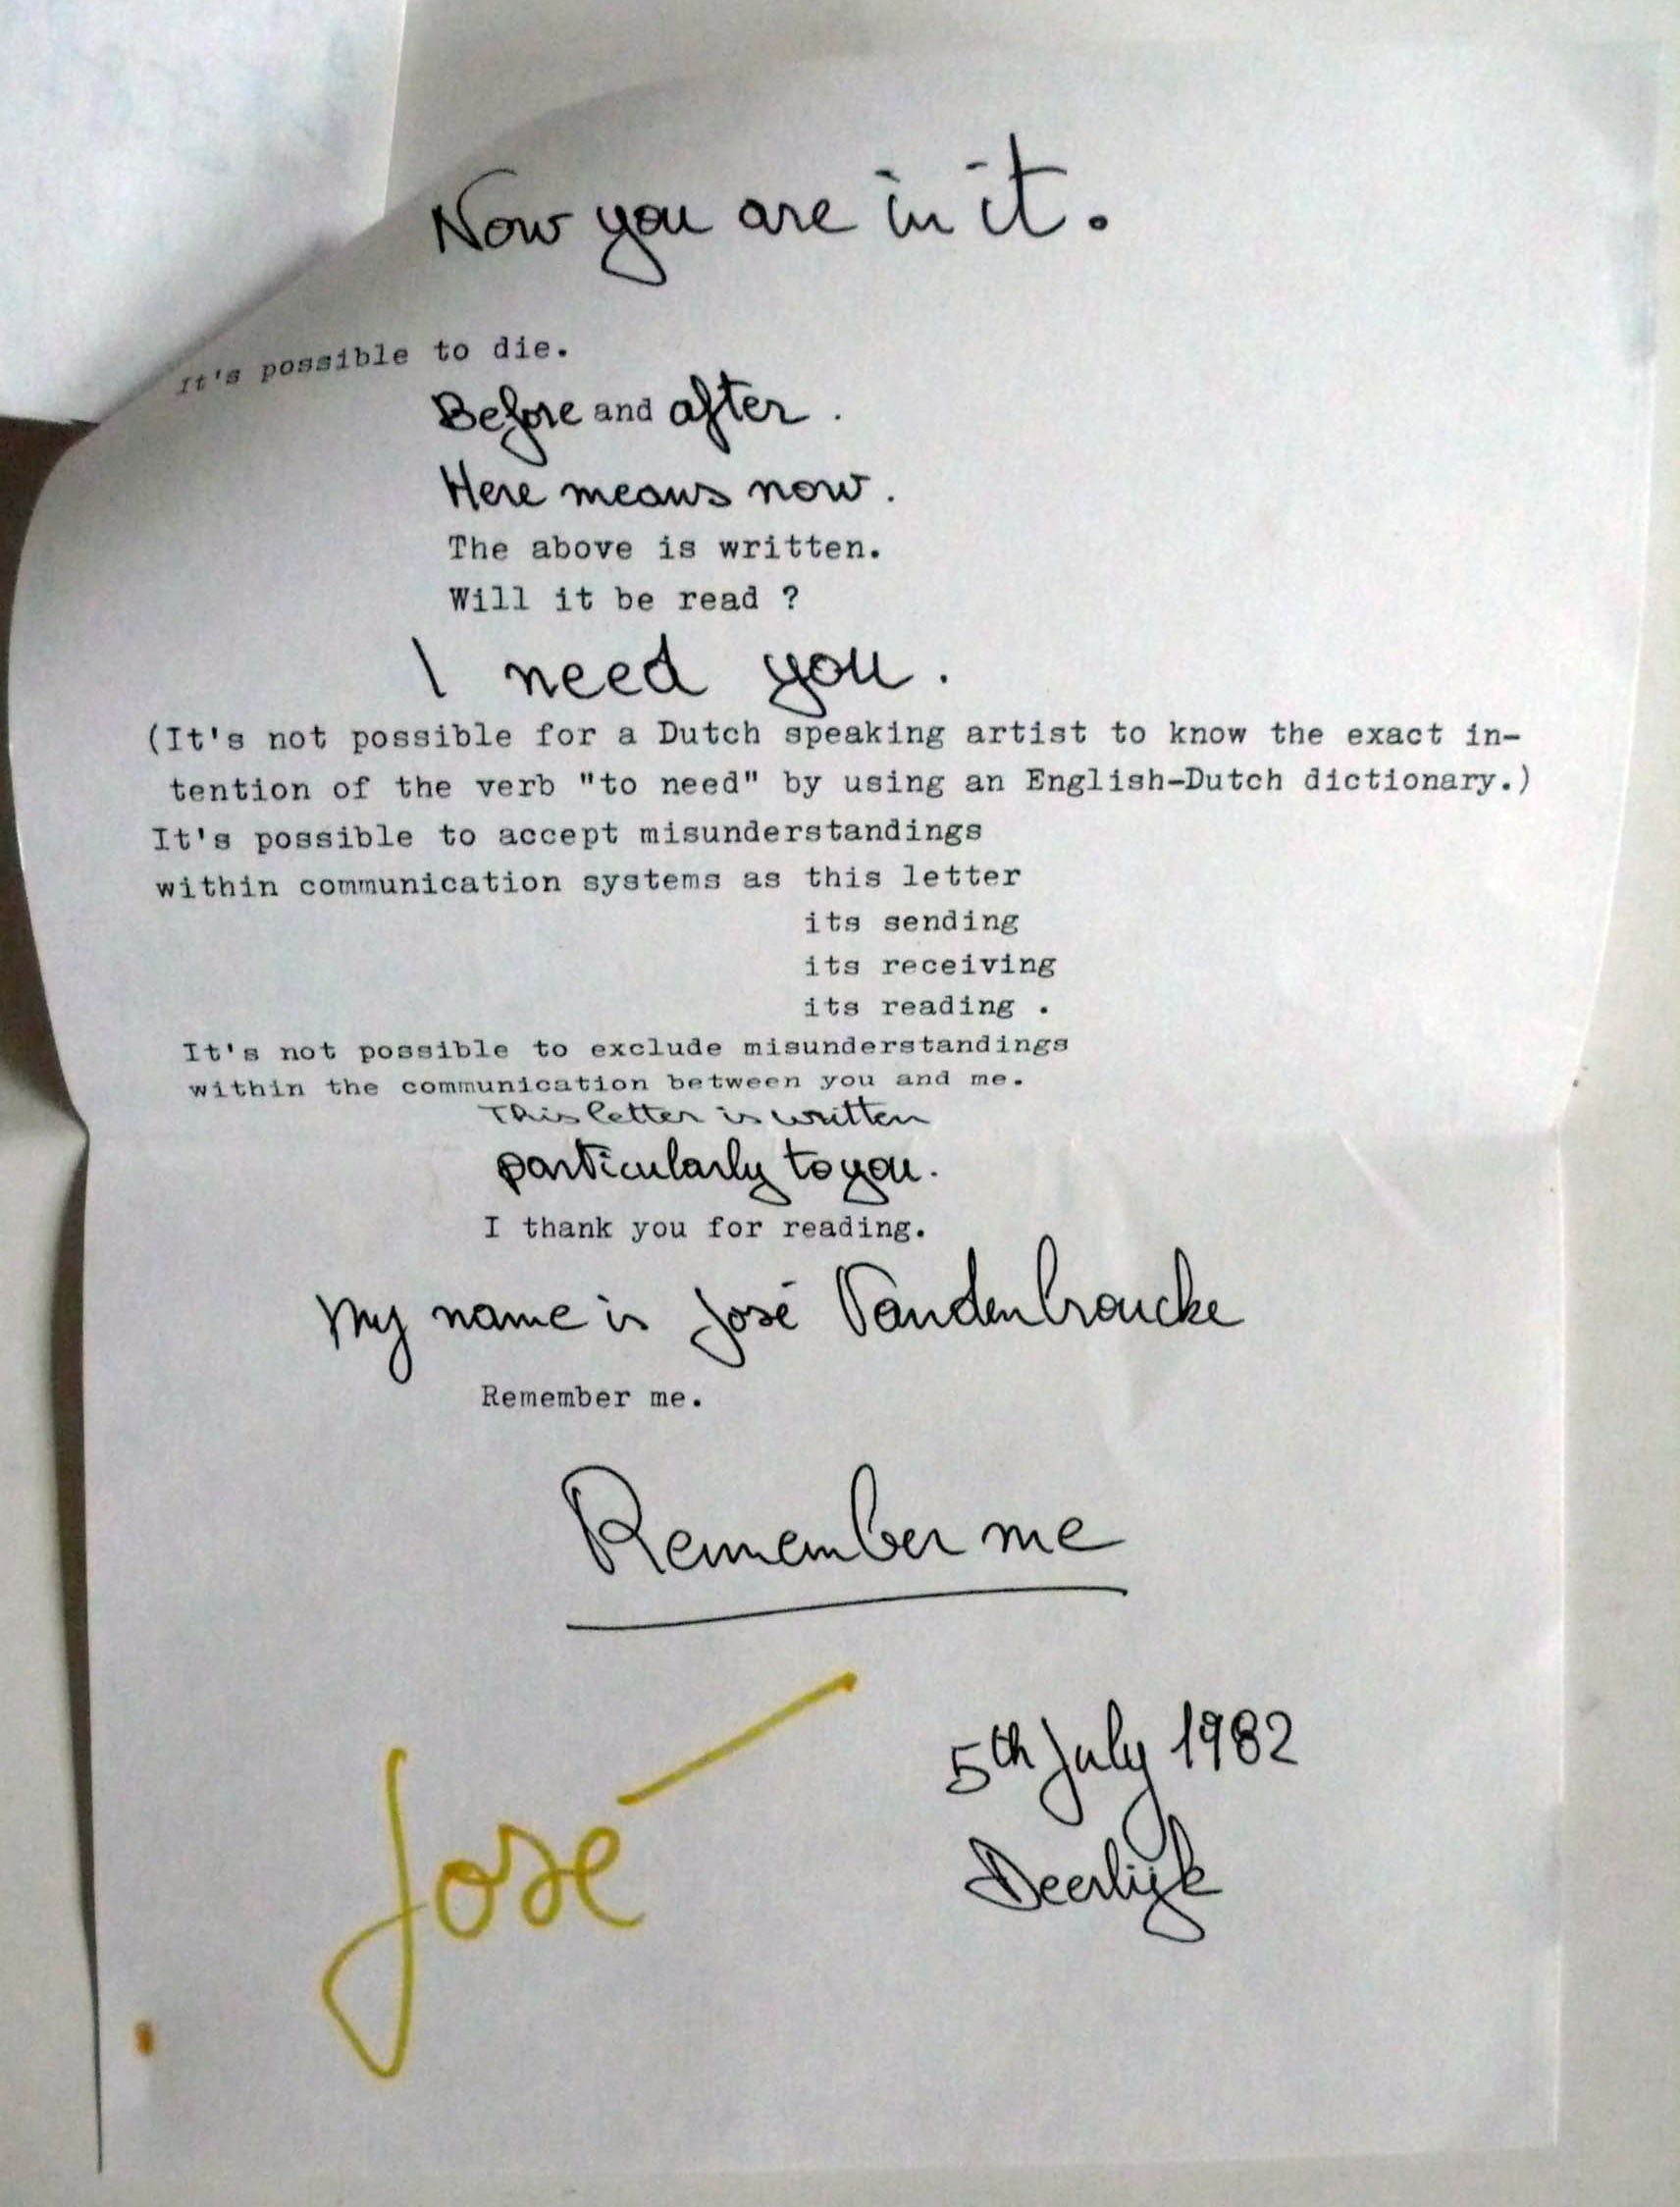 Now you are in it.
It's possible to die.
Before and after .
Here means now .
The above is written.
Will it be read ?
I need you .
(It's not possible for a Dutch speaking artist to know the exact in-
tention of the verb "to need" by using an English-Dutch dictionary.)
It's possible to accept misunderstandings
within communication systems as this letter
its sending
its receiving
its reading .
It's not possible to exclude misunderstandings
within the communication between you and me.
This letter is written
particularly to you.
I thank you for reading.
My name is José Vandenbroucke
Remember me.
Remember me
José
5th July 1982
Deerlijk